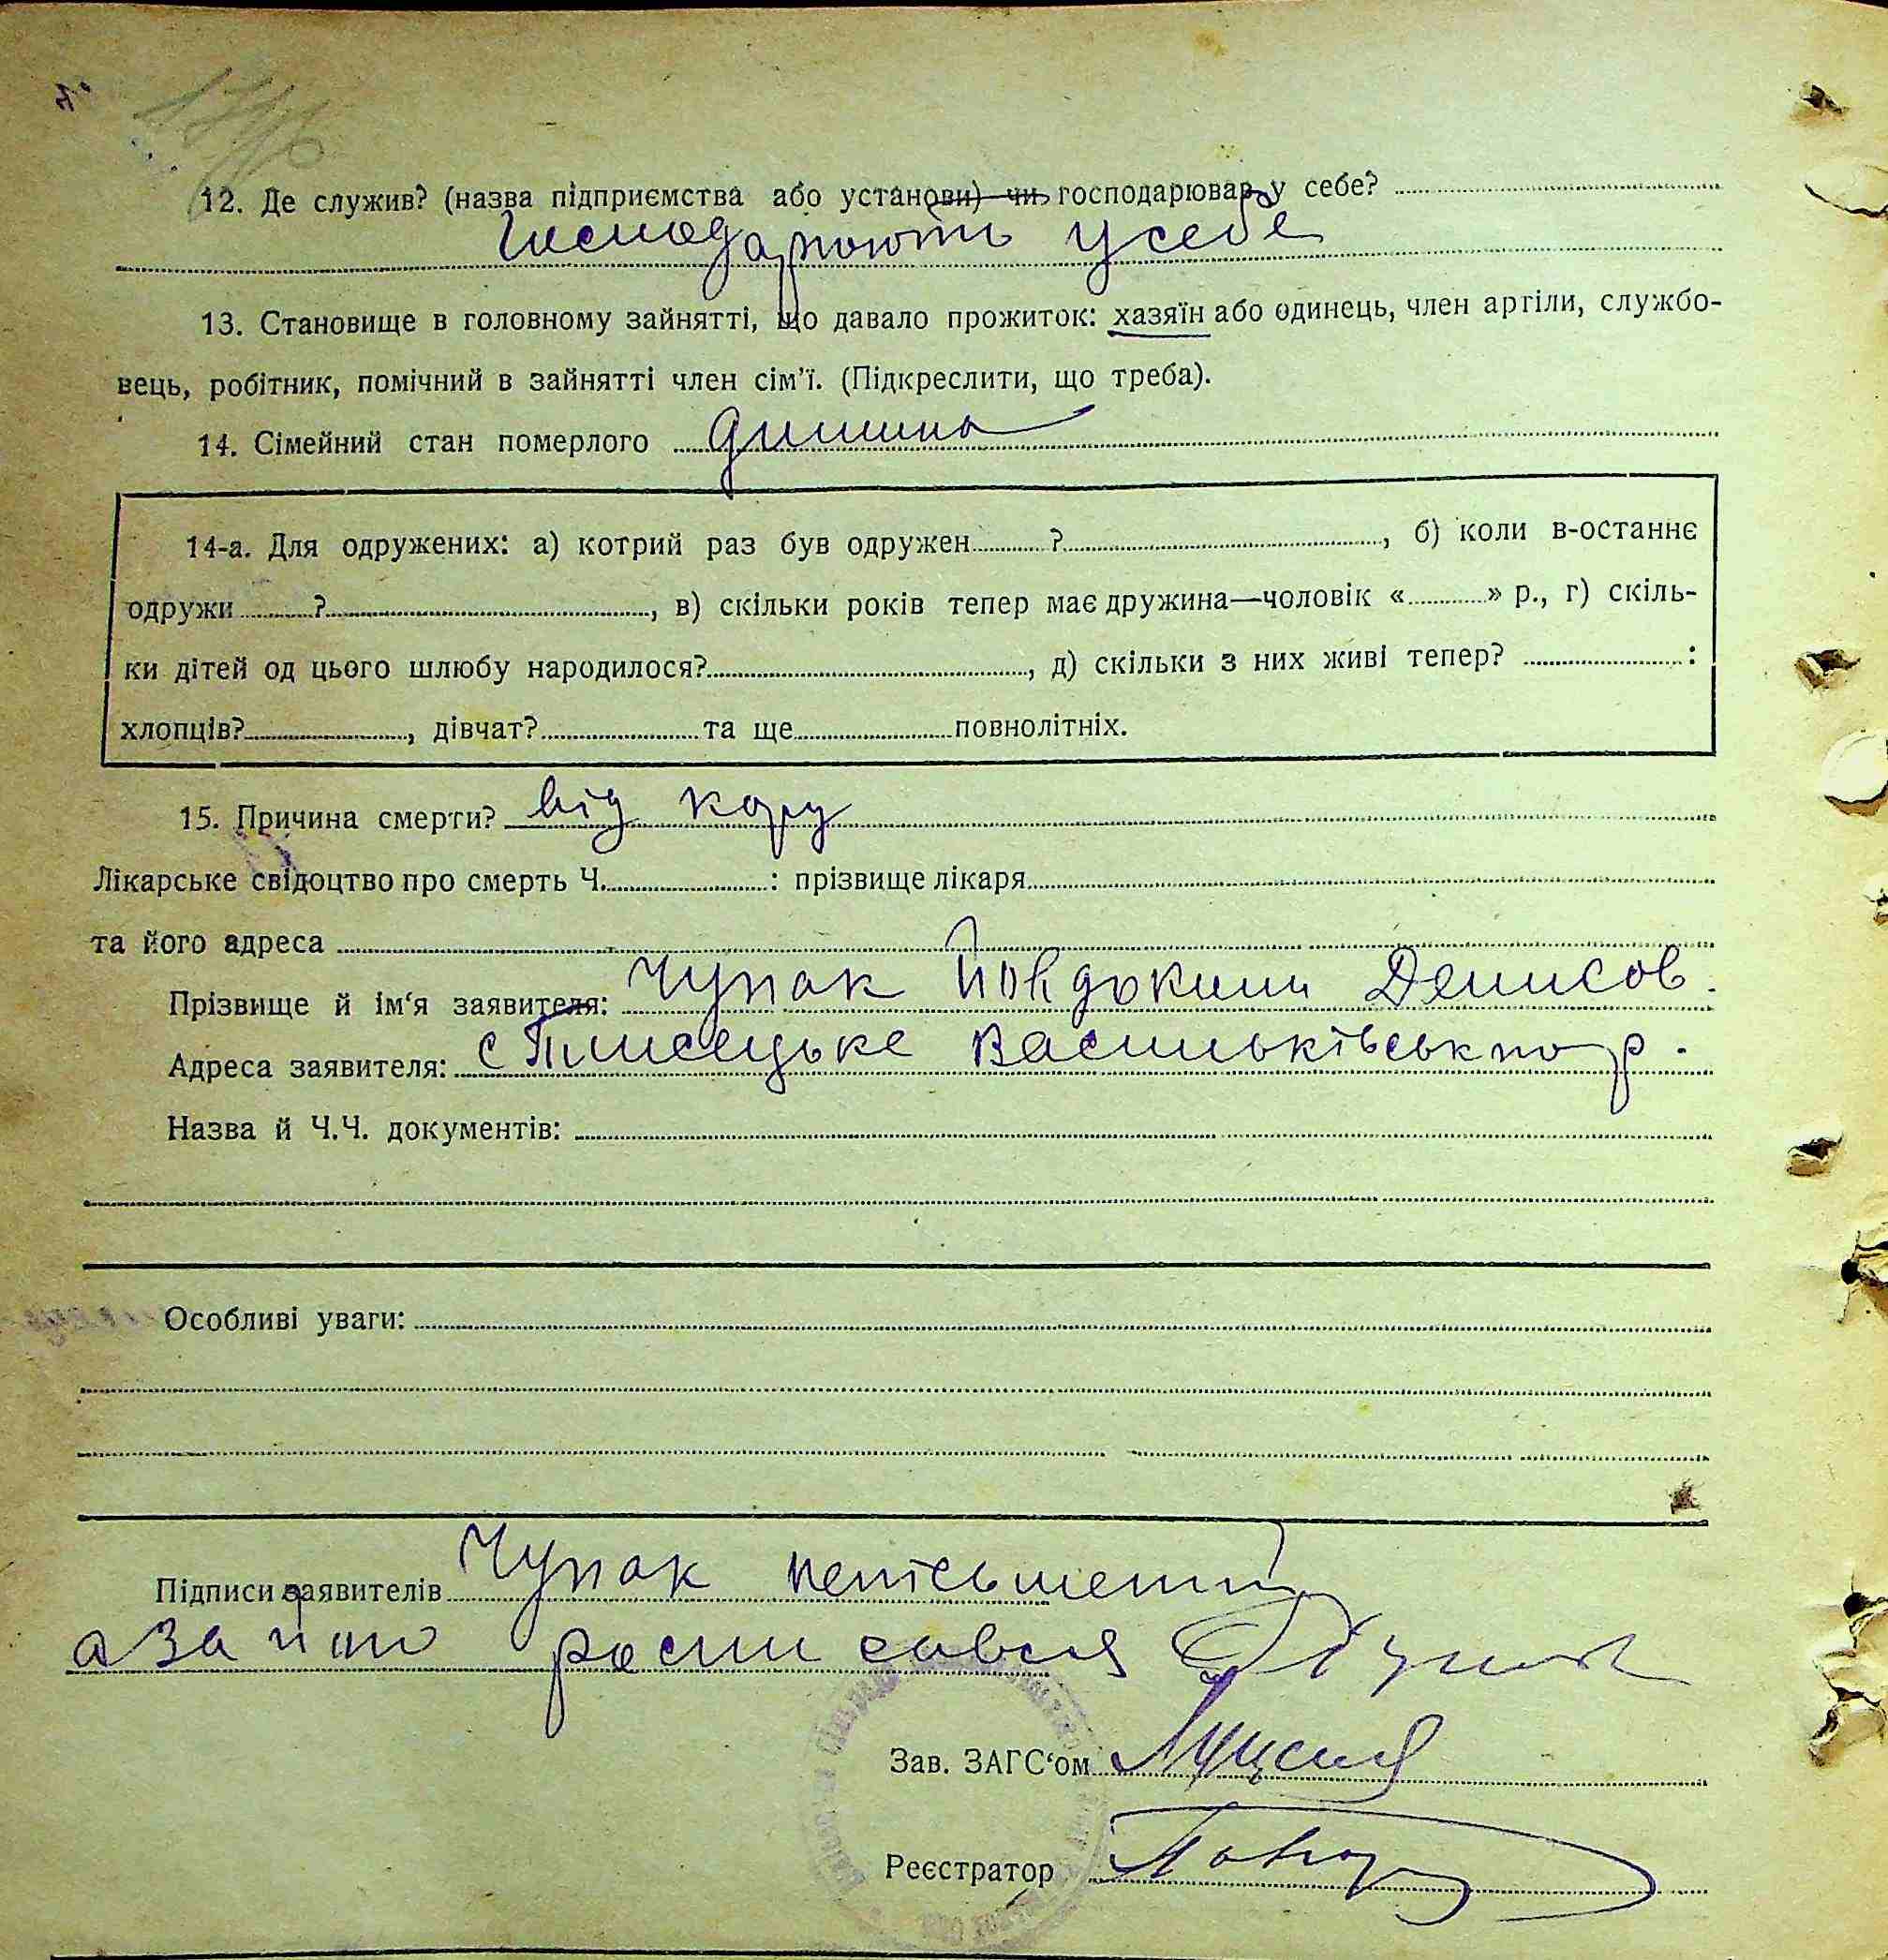 12. Де служив? (назва підприємства або установи) чи господарював у себе?
Господарюють у себе
13. Становище в головному зайнятті, що давало прожиток: хазяїн або одинець, член артіли, службо-
вець, робітник, помічний в зайнятті член сім'ї. (Підкреслити, що треба).
14. Сімейний стан померлого дитина
14-а. Для одружених: а) котрий раз був одружен ? , б) коли в-останнє
одружи ? , в) скільки років тепер має дружина—чоловік « » р., г) скіль-
ки дітей од цього шлюбу народилося? , д) скільки з них живі тепер? :
хлопців? , дівчат? та ще повнолітніх.
15. Причина смерти? від кору
Лікарське свідоцтво про смерть Ч. : прізвище лікаря
та його адреса
Прізвище й ім'я заявителя: Чупак Йовдоким Денисов.
Адреса заявителя: с Плисецьке Васильківськ р.
Назва й Ч.Ч. документів:
Особливі уваги:
Підписи заявителів Чупак
а за його росписався
Зав. ЗАГС'ом
Реєстратор